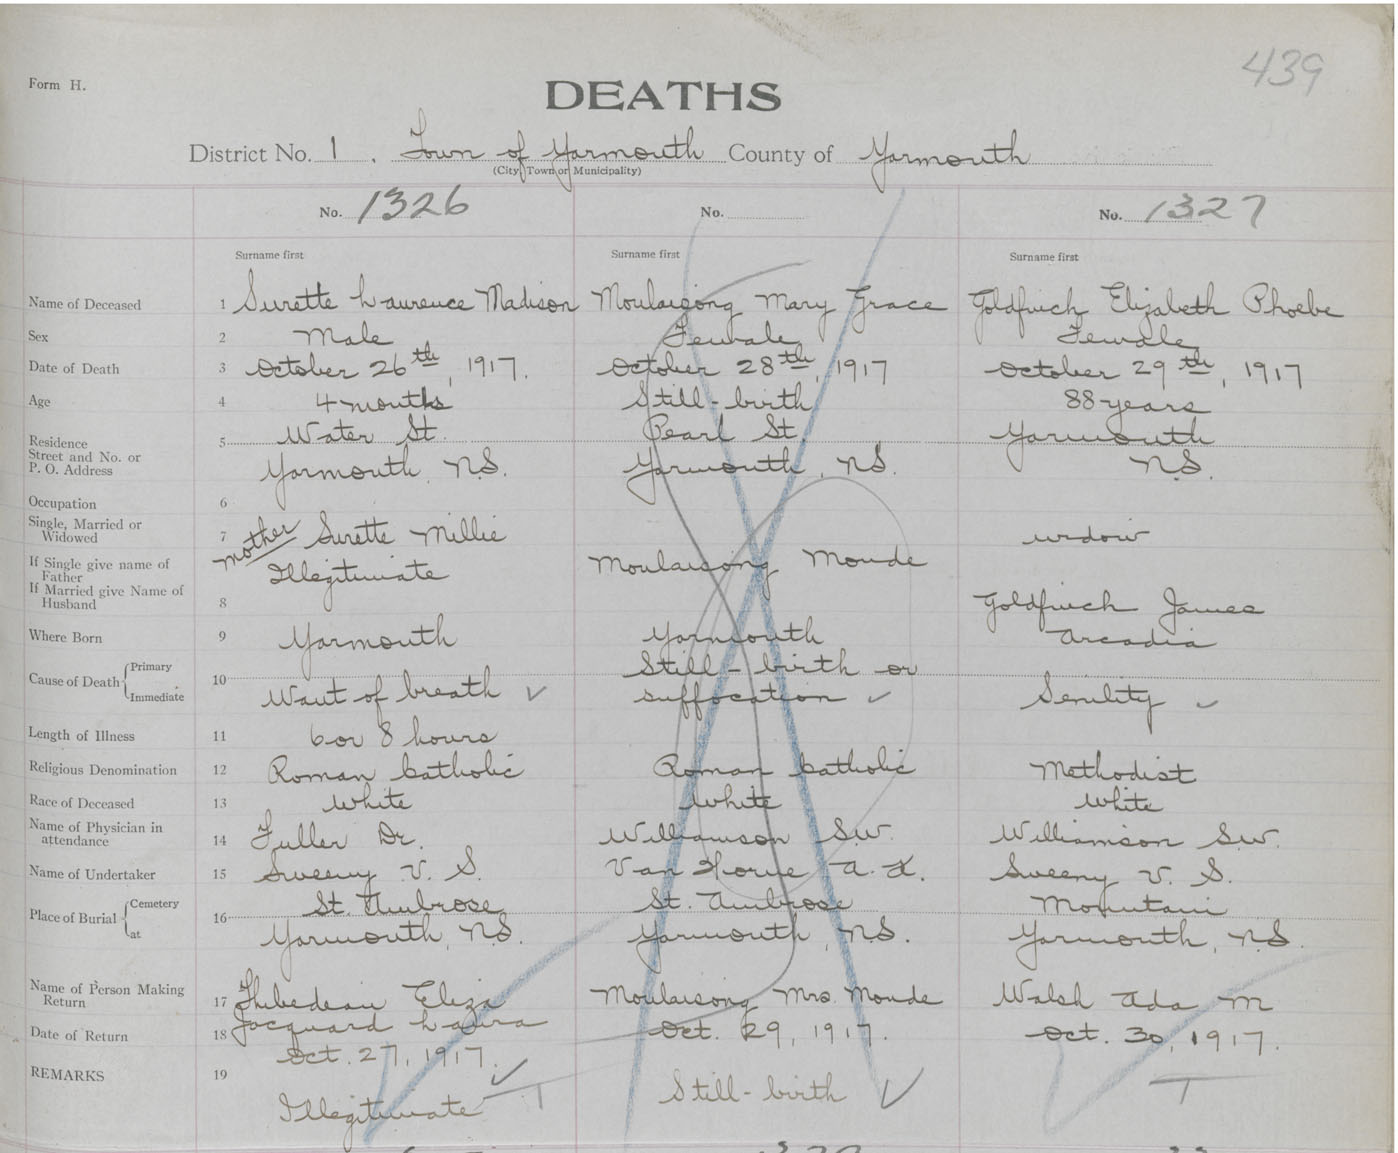 439
Form H.
DEATHS
District No. 1. Town of Yarmouth County of Yarmouth
(City, Town or Municipality)
No. 1326 No. No. 1327
Surname first Surname first Surname first
Name of Deceased 1 Surette Laurence Madison Moulaisong Mary Grace Goldfinch Elizabeth Phoebe
Sex 2 Male Female Female
Date of Death 3 October 26th, 1917. October 28th, 1917 October 29th, 1917
Age 4 4 months Still-birth 88 years
Residence 5 Water St. Pearl St. Yarmouth
Street and No. or
P. O. Address Yarmouth, N.S. Yarmouth, N.S. N.S.
Occupation 6
Single, Married or
Widowed 7 mother Surette Millie widow
If Single give name of
Father Illegitimate Moulaisong Moude
If Married give Name of
Husband 8 Goldfinch James
Where Born 9 Yarmouth Yarmouth Arcadia
Cause of Death { Primary 10 Still-birth or
Immediate Want of breath ✓ suffocation ✓ Senility ✓
Length of Illness 11 6 or 8 hours
Religious Denomination 12 Roman Catholic Roman Catholic Methodist
Race of Deceased 13 White White White
Name of Physician in
attendance 14 Fuller Dr. Williamson S.W. Williamson S.W.
Name of Undertaker 15 Sweeny V. S. Van Horne A. K. Sweeny V. S.
Place of Burial { Cemetery 16 St. Ambrose St. Ambrose Mountain
at Yarmouth, N.S. Yarmouth, N.S. Yarmouth, N.S.
Name of Person Making
Return 17 Thibedeau Eliza Moulaisong Mrs. Moude Walsh Ada M
Jacquard Laura
Date of Return 18 Oct. 27, 1917. Oct. 29, 1917. Oct. 30, 1917.
REMARKS 19 Illegitimate Still-birth ✓